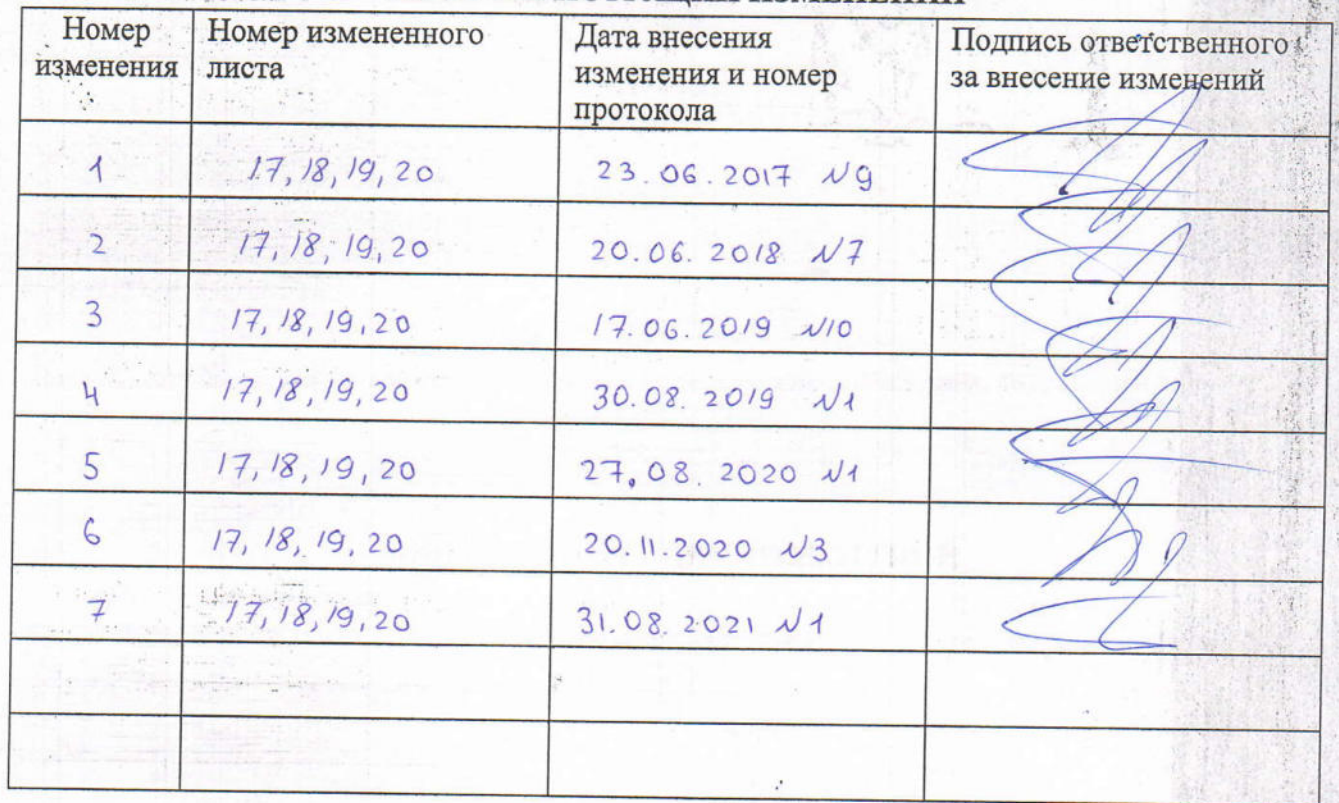 ИЗМЕНЕНИЙ
Номер изменения
Номер измененного листа
Дата внесения изменения и номер протокола
Подпись ответственного за внесение изменений
1 17, 18, 19, 20 23.06.2017 №9
2 17, 18, 19, 20 20.06.2018 №7
3 17, 18, 19, 20 17.06.2019 №10
4 17, 18, 19, 20 30.08.2019 №1
5 17, 18, 19, 20 27.08.2020 №1
6 17, 18, 19, 20 20.11.2020 №3
7 17, 18, 19, 20 31.08.2021 №1